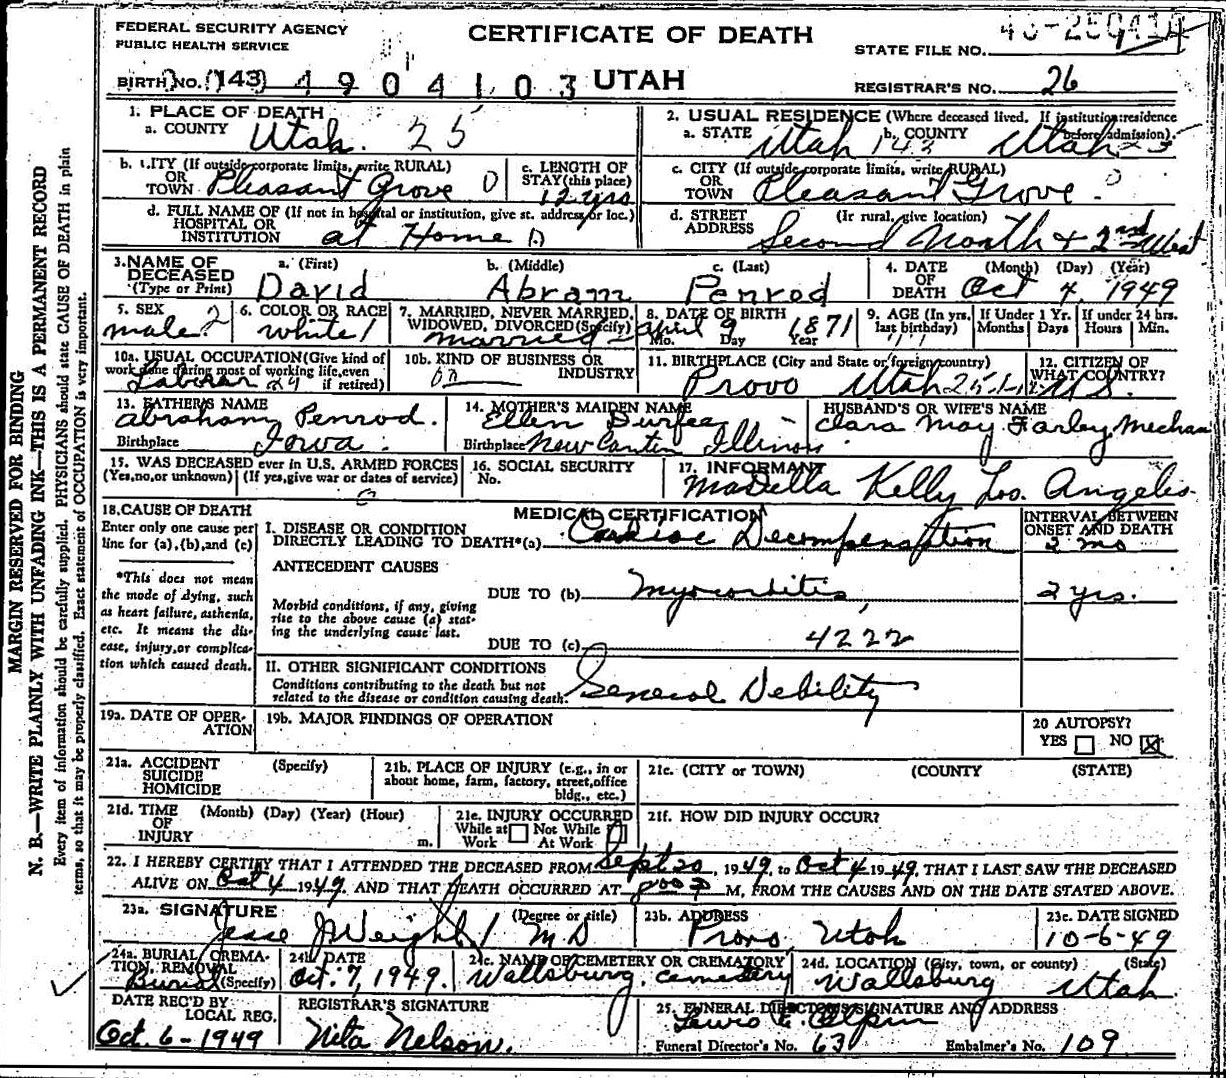 FEDERAL SECURITY AGENCY
PUBLIC HEALTH SERVICE
CERTIFICATE OF DEATH
STATE FILE NO.
BIRTH NO. (143) 4904103 UTAH
REGISTRAR'S NO. 26
1. PLACE OF DEATH
a. COUNTY Utah. 25
2. USUAL RESIDENCE (Where deceased lived. If institution: residence before admission).
a. STATE Utah 143 b. COUNTY Utah 25
b. CITY (If outside corporate limits, write RURAL) OR TOWN Pleasant Grove 0
c. LENGTH OF STAY (this place) 12 yrs
c. CITY (If outside corporate limits, write RURAL) OR TOWN Pleasant Grove. 0
d. FULL NAME OF (If not in hospital or institution, give st. address or loc.) HOSPITAL OR INSTITUTION at Home
d. STREET ADDRESS (If rural, give location) Second North + 2nd West
3. NAME OF DECEASED (Type or Print) a. (First) David b. (Middle) Abram c. (Last) Penrod
4. DATE OF DEATH (Month) (Day) (Year) Oct 4, 1949
5. SEX male 2
6. COLOR OR RACE white 1
7. MARRIED, NEVER MARRIED, WIDOWED, DIVORCED (Specify) married 2
8. DATE OF BIRTH april 9 1871 Mo. Day Year
9. AGE (In yrs. last birthday)
If Under 1 Yr. Months Days
If under 24 hrs. Hours Min.
10a. USUAL OCCUPATION (Give kind of work done during most of working life, even if retired) Laborer
10b. KIND OF BUSINESS OR INDUSTRY
11. BIRTHPLACE (City and State or foreign country) Provo Utah
12. CITIZEN OF WHAT COUNTRY? U.S.
13. FATHER'S NAME Abraham Penrod.
Birthplace Iowa.
14. MOTHER'S MAIDEN NAME Ellen Durfee
Birthplace New Canton Illinois
HUSBAND'S OR WIFE'S NAME
Clara May Farley Mecham
15. WAS DECEASED ever in U.S. ARMED FORCES
(Yes, no, or unknown) (If yes, give war or dates of service)
16. SOCIAL SECURITY No.
17. INFORMANT
Madella Kelly Los Angeles
18. CAUSE OF DEATH
Enter only one cause per line for (a), (b), and (c)
*This does not mean the mode of dying, such as heart failure, asthenia, etc. It means the disease, injury, or complication which caused death.
MEDICAL CERTIFICATION
INTERVAL BETWEEN ONSET AND DEATH
I. DISEASE OR CONDITION DIRECTLY LEADING TO DEATH*(a) Cardiac Decompensation 2 mo
ANTECEDENT CAUSES
Morbid conditions, if any, giving rise to the above cause (a) stating the underlying cause last.
DUE TO (b) Myocarditis, 2 yrs.
DUE TO (c) 4222
II. OTHER SIGNIFICANT CONDITIONS
Conditions contributing to the death but not related to the disease or condition causing death. General Debility
19a. DATE OF OPERATION
19b. MAJOR FINDINGS OF OPERATION
20 AUTOPSY?
YES NO
21a. ACCIDENT SUICIDE HOMICIDE (Specify)
21b. PLACE OF INJURY (e.g., in or about home, farm, factory, street, office bldg., etc.)
21c. (CITY or TOWN) (COUNTY) (STATE)
21d. TIME OF INJURY (Month) (Day) (Year) (Hour) m.
21e. INJURY OCCURRED
While at Work Not While At Work
21f. HOW DID INJURY OCCUR?
22. I HEREBY CERTIFY THAT I ATTENDED THE DECEASED FROM Sept 20, 1949, to Oct 4 1949, THAT I LAST SAW THE DECEASED
ALIVE ON Oct 4 1949, AND THAT DEATH OCCURRED AT 800 P M, FROM THE CAUSES AND ON THE DATE STATED ABOVE.
23a. SIGNATURE (Degree or title) Jesse J Weight M D
23b. ADDRESS Provo, Utah
23c. DATE SIGNED 10-6-49
24a. BURIAL, CREMATION, REMOVAL (Specify) Burial
24b. DATE Oct. 7, 1949.
24c. NAME OF CEMETERY OR CREMATORY Wallsburg. Cemetery
24d. LOCATION (City, town, or county) (State) Wallsburg Utah
DATE REC'D BY LOCAL REG. Oct. 6-1949
REGISTRAR'S SIGNATURE Nita Nelson.
25. FUNERAL DIRECTOR'S SIGNATURE AND ADDRESS
Lewis E. Olpin
Funeral Director's No. 63 Embalmer's No. 109
MARGIN RESERVED FOR BINDING
N. B.—WRITE PLAINLY WITH UNFADING INK—THIS IS A PERMANENT RECORD
Every item of information should be carefully supplied. PHYSICIANS should state CAUSE OF DEATH in plain
terms, so that it may be properly classified. Exact statement of OCCUPATION is very important.